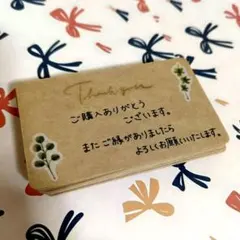 Thank you
ご購入ありがとう
ございます。
またご縁がありましたら
よろしくお願いいたします。